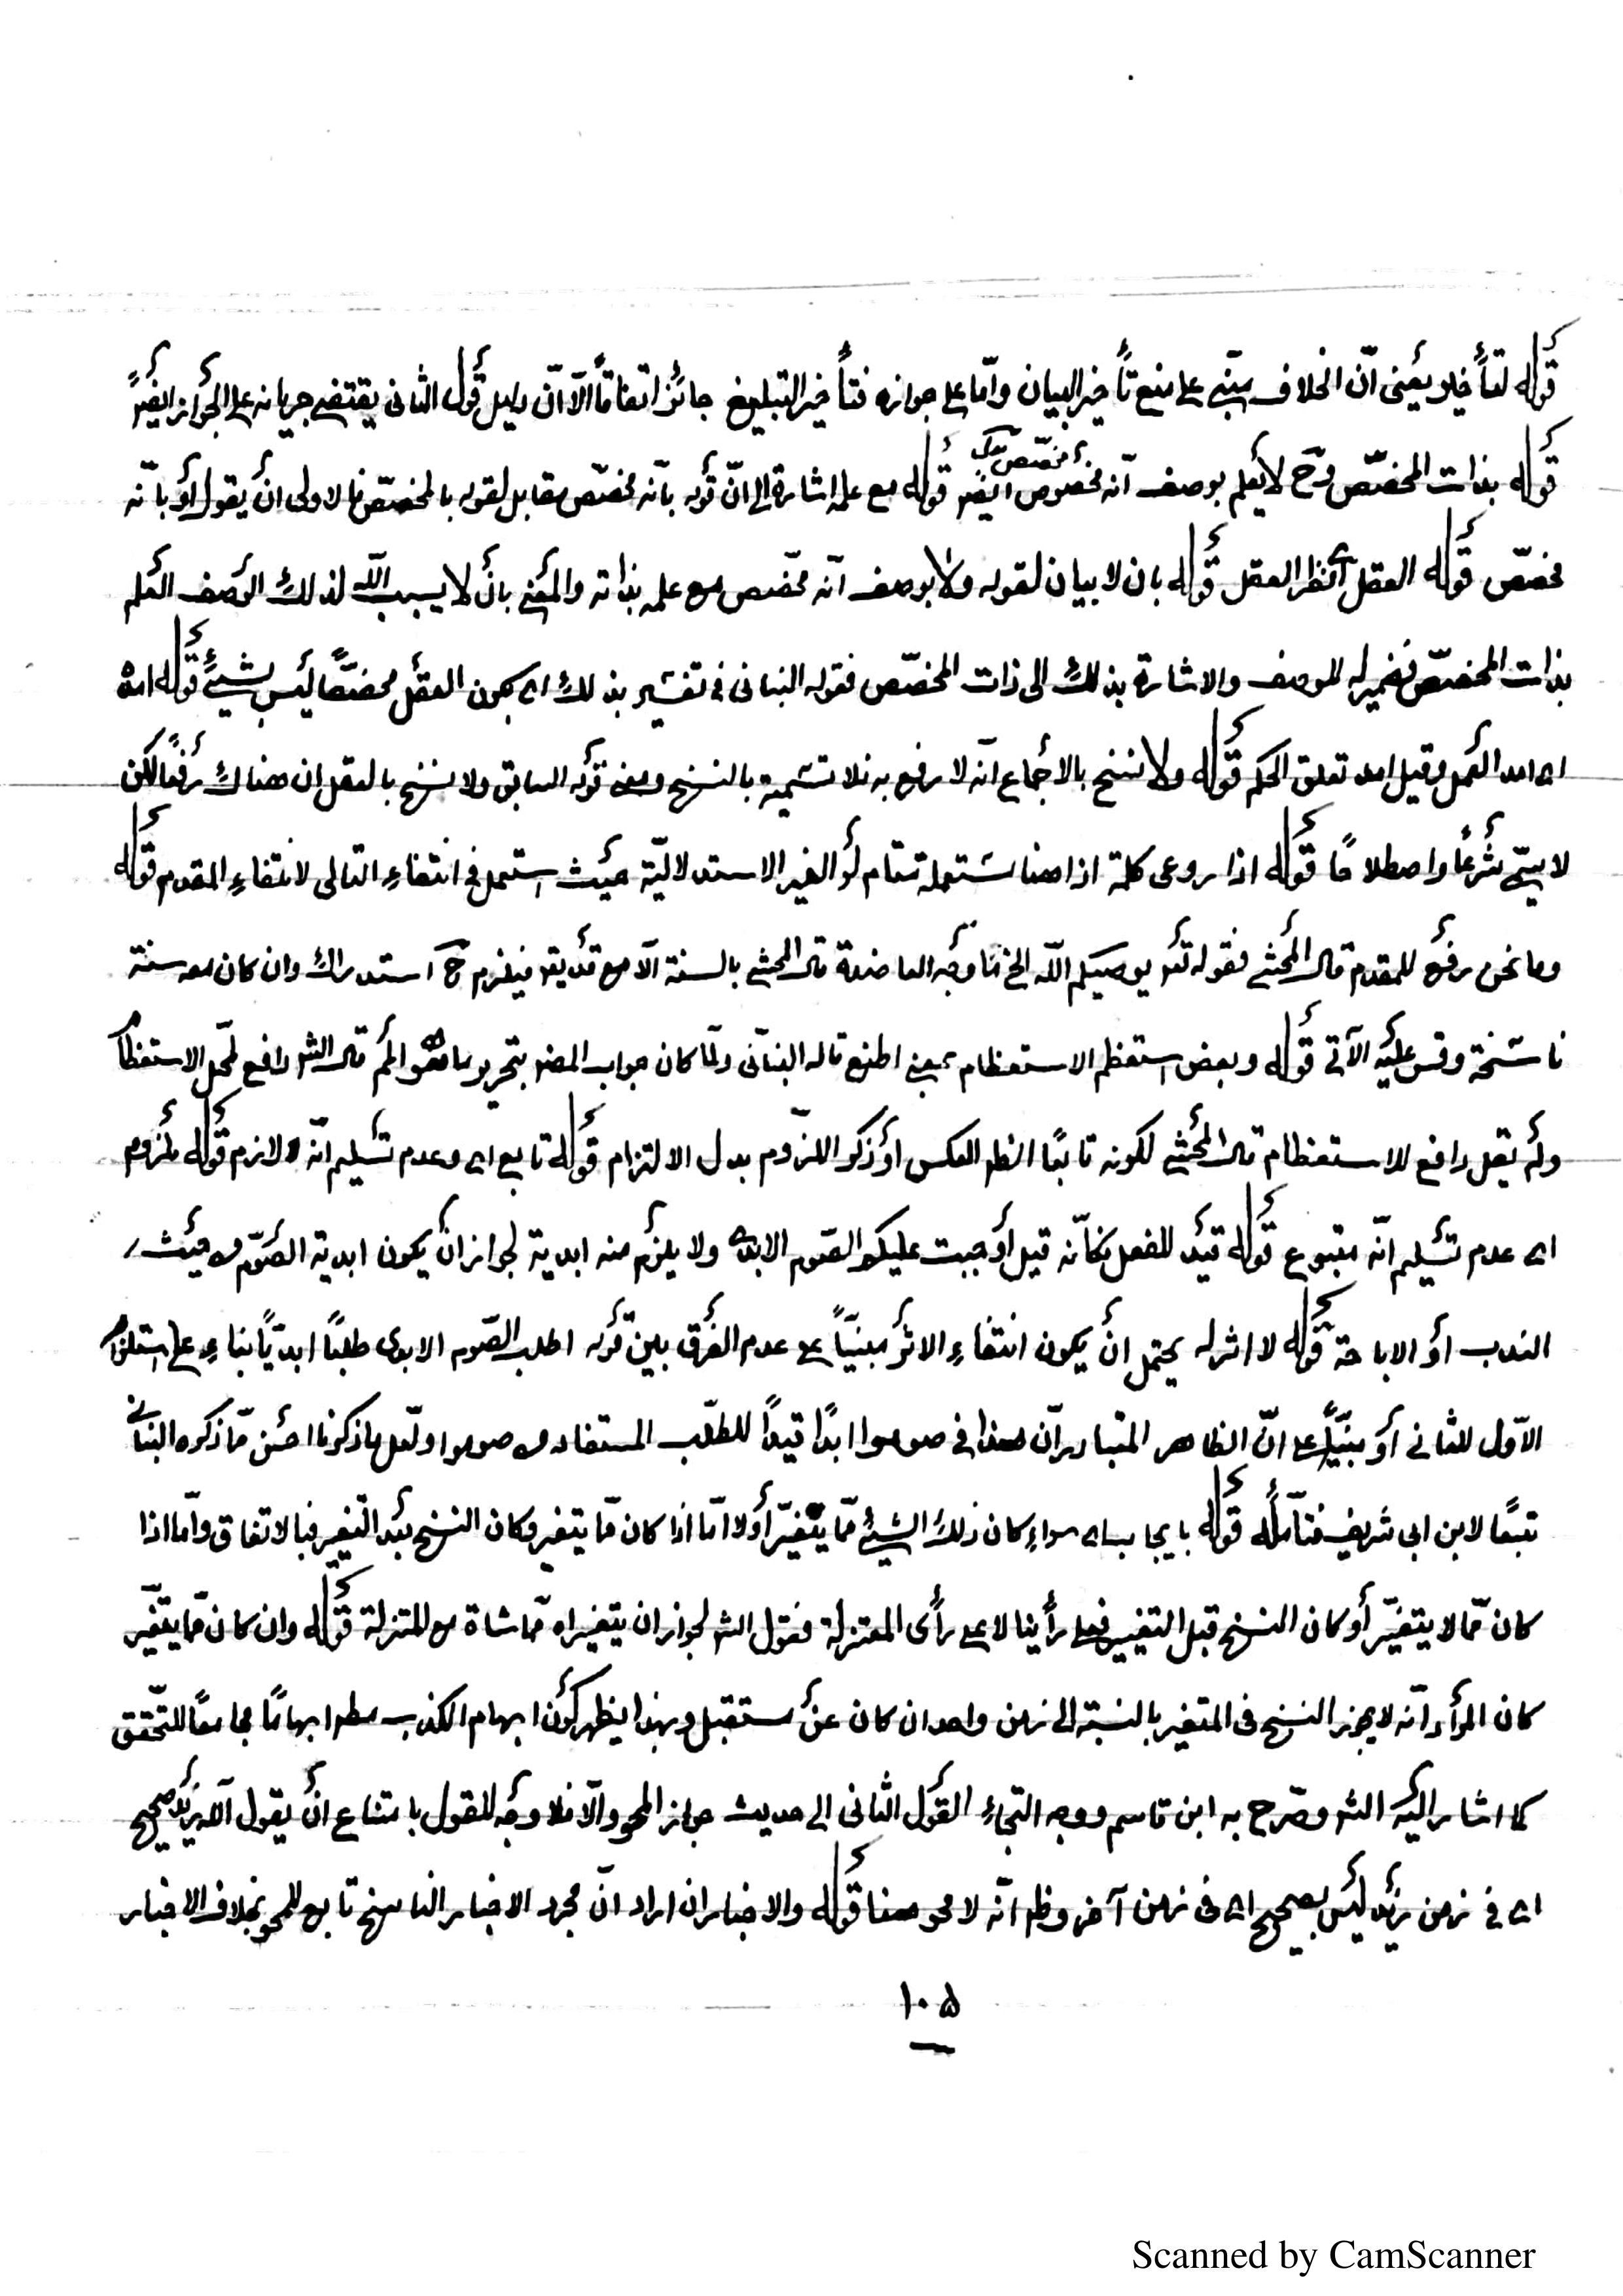 قوله لتأخير يعنى انّ الخلاف مبنىّ على منع تأخير البيان وامّا على جوازه فتأخير التبليغ جائز اتفاقاً الّا انّ دليل قول الثانى يقتضى جريانه على الجواز ايضاً
قوله بذات المخصّص وح لا يعلم بوصف انّه مخصوص ايضا قوله مع علمه اشارة الى انّ قوله بأنّه مخصّص مقابل لقوله بالمخصّص فالاولى ان يقول او بانّه
مخصّص قوله العقل اى نظر العقل قوله بان لا بيان لقوله ولا بوصف انّه مخصّص مع علمه بذاته والمعنى بأن لا يسبب الله لذلك الوصف العلم
بذات المخصّص فضمير له للوصف والاشارة بذلك الى ذات المخصّص فقوله البنانى فى تفسير بذلك اى بكون العقل مخصّصًا ليس بشيئ قوله امده
اى امد العمل وقيل امد تعلق الحكم قوله ولا نسخ بالاجماع انّه لا رفع به فلا تسمية بالنسخ ومعنى قوله السابق ولا نسخ بالعقل ان هناك رفعًا لكن
لا يسمّى شرعًا واصطلاحًا قوله اذا روعى كلمة اذا هنا مستعملة مقام لو الغير الاستدلاليّة حيث استعمل فى انتفاءِ التالى لانتفاءِ المقدم قوله
وما نحن رفع للمقدم قال المحشى فقوله تعـ يوصيكم الله الخ ما وجه المعاضدة قال المحشى بالسنة الّا مع قد يقـ فيلزم ح استدراك وان كان معه سنة
ناسخة وقس عليه الآتى قوله وبعض استعظم الاستعظام بمعنى قاله البنانّى ولمّا كان جواب المصـ بتحرير ما هو المـ قال الشـ رافع لمحل الاستعظام
ولم يقل رافع للاستعظام قال المحشى لكونه تابعًا الظـ العكس او ذكر اللزّوم بدل الالتزام قوله تابع اى وعدم تسليم انّه لازم قوله ملزوم
اى عدم تسليم انّه متبوع قوله قيد للفعل فكأنّه قيل أوجبت عليكم الصّوم الابدى ولا يلزم منه ابدية لجواز ان يكون ابدية الصّوم من حيث
الندب أو الاباحة قوله لا اثر له يحتمل ان يكون انتفاءِ الاثر مبنيّاً على عدم الفرق بين قوله اطلب الصّوم الابدى طلبًا ابديّاً بناءِ على استلزام
الاوّل للثانى أو مبنيّاً على انّ الظاهر المتبادر انّ هذا فى صوموا ابدًا قيداً للطلّب المستفاد من صوموا ولعّل ما ذكرنا احسن ممّا ذكره البنانى
تبعًا لابن ابى شريف فتأمله قوله بايجاب اى سواءِ كان ذلك الشيئ ممّا يتغيّر أو لا امّا اذا كان ممّا يتغير وكان النسخ بعد التغير فبالاتفاق وامّا اذا
كان ممّا لا يتغيّر أو كان النسخ قبل التغيير فعلى رأينا لا على رأى المعتزلة فقول الشـ لجواز ان يتغيراه مماشاة مع المعتزلة قوله وان كان ممّا يتغّير
كان المراد انّه لا يجوز النسخ فى المتغير بالنسبة الى زمن واحد ان كان عن مستقبل وبهذا يظهر كون ايهام الكذب مطـ ايهامًا مجامعًا للتحقق
كما اشار اليه الشـ وصّرح به ابن قاسم ووجه التجاءِ القول الثانى الى حديث جواز المحو والّا فلا وجه للقول بامتناع ان يقول الله زيد صحيح
اى فى زمن زيد ليس بصحيح اى فى زمن آخر وظـ انّه لا محو هنا قوله والاخبار ان اراد انّ مجرد الاخبار الناسخ تابع للمحو بخلاف الاخبار
١٠٥
Scanned by CamScanner